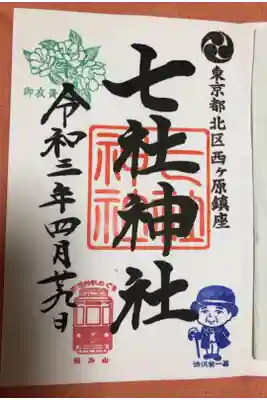 東京都北区西ヶ原鎮座
七社神社
七社
神社
御衣黄
令和三年四月廿九日
飛鳥山
渋沢栄一翁